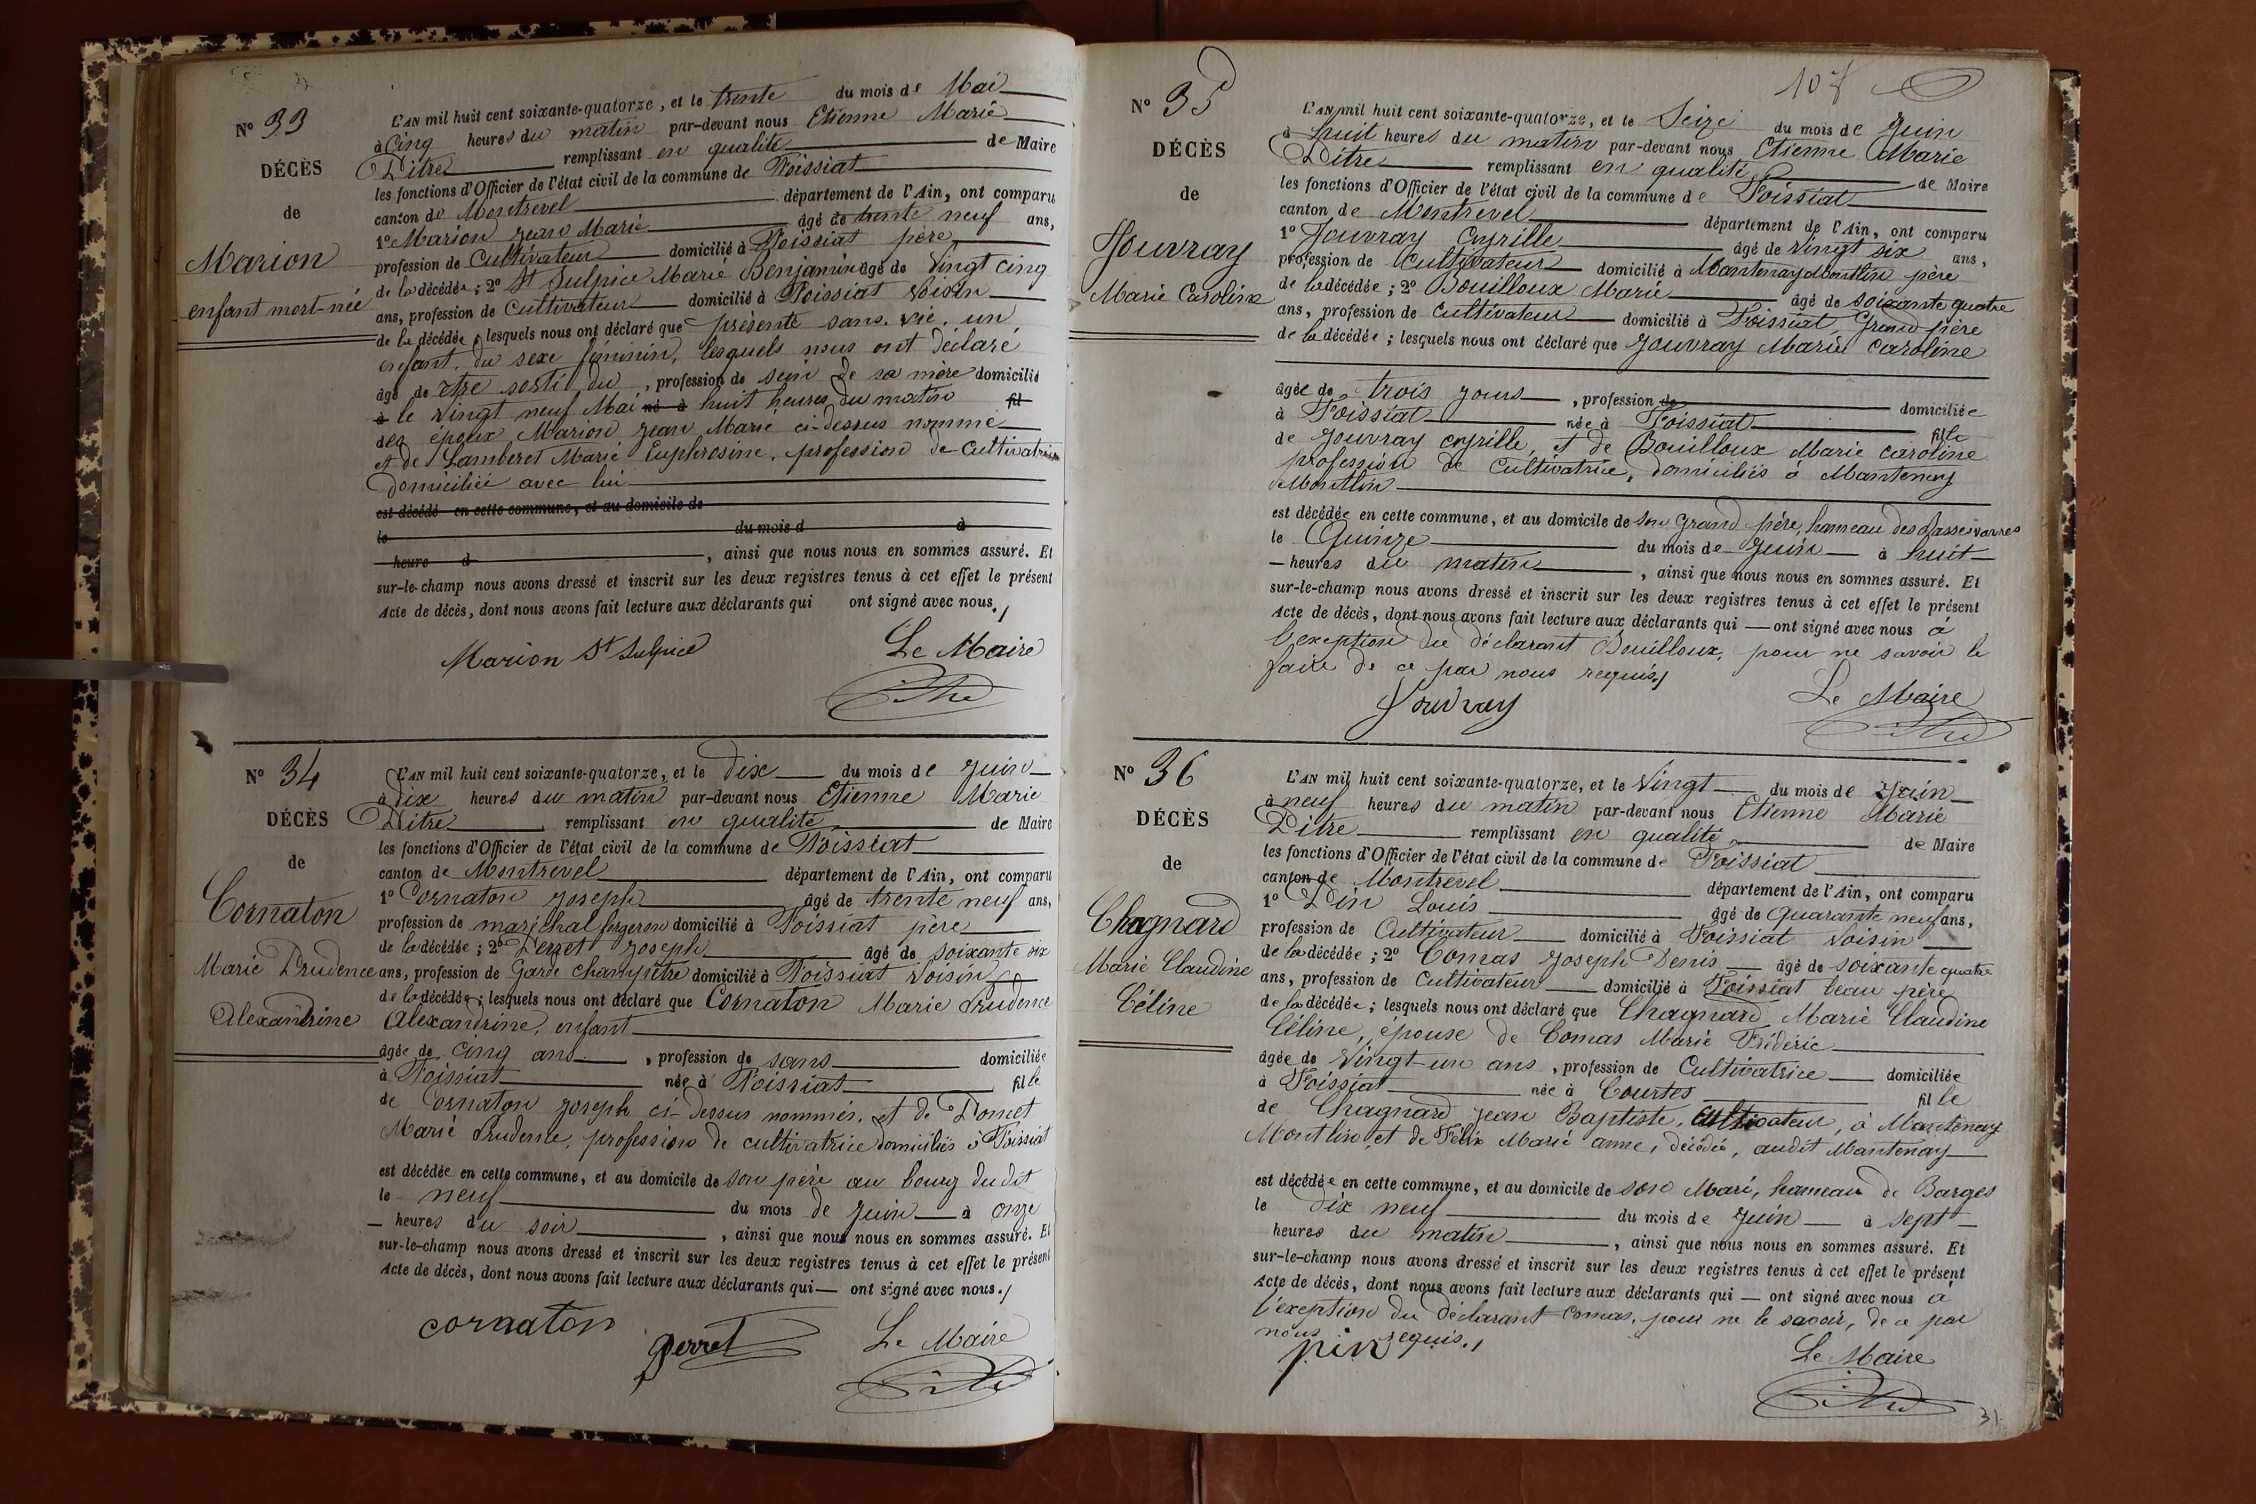 N° 33
DÉCÈS
de
Marion
enfant mort-née
L'AN mil huit cent soixante-quatorze, et le trente du mois de Mai
à Cinq heures du matin par-devant nous Etienne Marie
Pitre remplissant en qualité de Maire
les fonctions d'Officier de l'état civil de la commune de Foissiat
canton de Montrevel département de l'Ain, ont comparu
1° Marion Jean Marie âgé de trente neuf ans,
profession de Cultivateur domicilié à Foissiat père
de la décédée; 2° St Sulpice Marie Benjamin âgé de Vingt cinq
ans, profession de Cultivateur domicilié à Foissiat Voisin
de la décédée, lesquels nous ont déclaré que présenté sans vie, un
enfant du sexe féminin, lesquels nous ont déclaré
âgé de être sorti du, profession de sein de sa mère domicilié
à le Vingt neuf Mai né à huit heures du matin fil
des époux Marion Jean Marie ci-dessus nommé
et de Lamberet Marie Euphrosine, profession de Cultivatrice
Domiciliée avec lui
est décédé en cette commune, et au domicile de
le du mois d à
heure d , ainsi que nous nous en sommes assuré. Et
sur-le-champ nous avons dressé et inscrit sur les deux registres tenus à cet effet le présent
Acte de décès, dont nous avons fait lecture aux déclarants qui ont signé avec nous.
Marion St Sulpice Le Maire
Pitre
N° 34
DÉCÈS
de
Cornaton
Marie Prudence
Alexandrine
L'AN mil huit cent soixante-quatorze, et le dix du mois de Juin
à Dix heures du matin par-devant nous Etienne Marie
Pitre remplissant en qualité de Maire
les fonctions d'Officier de l'état civil de la commune de Foissiat
canton de Montrevel département de l'Ain, ont comparu
1° Cornaton Joseph âgé de trente neuf ans,
profession de maréchal forgeron domicilié à Foissiat père
de la décédée; 2° Perret Joseph âgé de soixante six
ans, profession de Garde champêtre domicilié à Foissiat Voisin
de la décédée; lesquels nous ont déclaré que Cornaton Marie Prudence
Alexandrine, enfant
âgée de Cinq ans, profession de sans domiciliée
à Foissiat née à Foissiat fille
de Cornaton Joseph ci-dessus nommés, et de
Marie Prudence, profession de cultivatrice domiciliés à Foissiat
est décédée en cette commune, et au domicile de son père au bourg dudit
le neuf du mois de Juin à onze
heures du soir, ainsi que nous nous en sommes assuré. Et
sur-le-champ nous avons dressé et inscrit sur les deux registres tenus à cet effet le présent
Acte de décès, dont nous avons fait lecture aux déclarants qui ont signé avec nous.
cornaton perret Le Maire
Pitre
107
N° 35
DÉCÈS
de
Jouvray
Marie Caroline
L'AN mil huit cent soixante-quatorze, et le Seize du mois de Juin
à huit heures du matin par-devant nous Etienne Marie
Pitre remplissant en qualité de Maire
les fonctions d'Officier de l'état civil de la commune de Foissiat
canton de Montrevel département de l'Ain, ont comparu
1° Jouvray Cyrille âgé de Vingt six ans,
profession de Cultivateur domicilié à Mantenay Montlin père
de la décédée; 2° Bouilloux Marie âgé de soixante quatre
ans, profession de Cultivateur domicilié à Foissiat, Grand père
de la décédée; lesquels nous ont déclaré que Jouvray Marie Caroline
âgée de trois jours, profession de domiciliée
à Foissiat née à Foissiat fille
de Jouvray Cyrille, et de Bouilloux Marie Caroline
profession de Cultivatrice, domiciliés à Mantenay
Montlin
est décédée en cette commune, et au domicile de son Grand père, hameau des
le Quinze du mois de Juin à huit
heures du matin, ainsi que nous nous en sommes assuré. Et
sur-le-champ nous avons dressé et inscrit sur les deux registres tenus à cet effet le présent
Acte de décès, dont nous avons fait lecture aux déclarants qui ont signé avec nous à
l'exeption du déclarant Bouilloux, pour ne savoir le
faire de ce par nous requis.
Jouvray Le Maire
Pitre
N° 36
DÉCÈS
de
Chagnard
Marie Claudine
Céline
L'AN mil huit cent soixante-quatorze, et le Vingt du mois de Juin
à neuf heures du matin par-devant nous Etienne Marie
Pitre remplissant en qualité de Maire
les fonctions d'Officier de l'état civil de la commune de Foissiat
canton de Montrevel département de l'Ain, ont comparu
1° Pin Louis âgé de Quarante neuf ans,
profession de Cultivateur domicilié à Foissiat Voisin
de la décédée; 2° Comas Joseph Denis âgé de soixante quatre
ans, profession de Cultivateur domicilié à Foissiat beau père
de la décédée; lesquels nous ont déclaré que Chagnard Marie Claudine
Céline, épouse de Comas Marie Fréderic
âgée de Vingt-un ans, profession de Cultivatrice domiciliée
à Foissiat née à Courtes fille
de Chagnard Jean Baptiste, Cultivateur, à Mantenay
Montlin et de Félix Marie anne, décédée, audit Mantenay
est décédée en cette commune, et au domicile de son Mari, hameau de Barges
le dix neuf du mois de Juin à sept
heures du matin, ainsi que nous nous en sommes assuré. Et
sur-le-champ nous avons dressé et inscrit sur les deux registres tenus à cet effet le présent
Acte de décès, dont nous avons fait lecture aux déclarants qui ont signé avec nous à
l'exeption du Déclarant Comas, pour ne le savoir, de ce par
nous requis.
pin Le Maire
Pitre
31